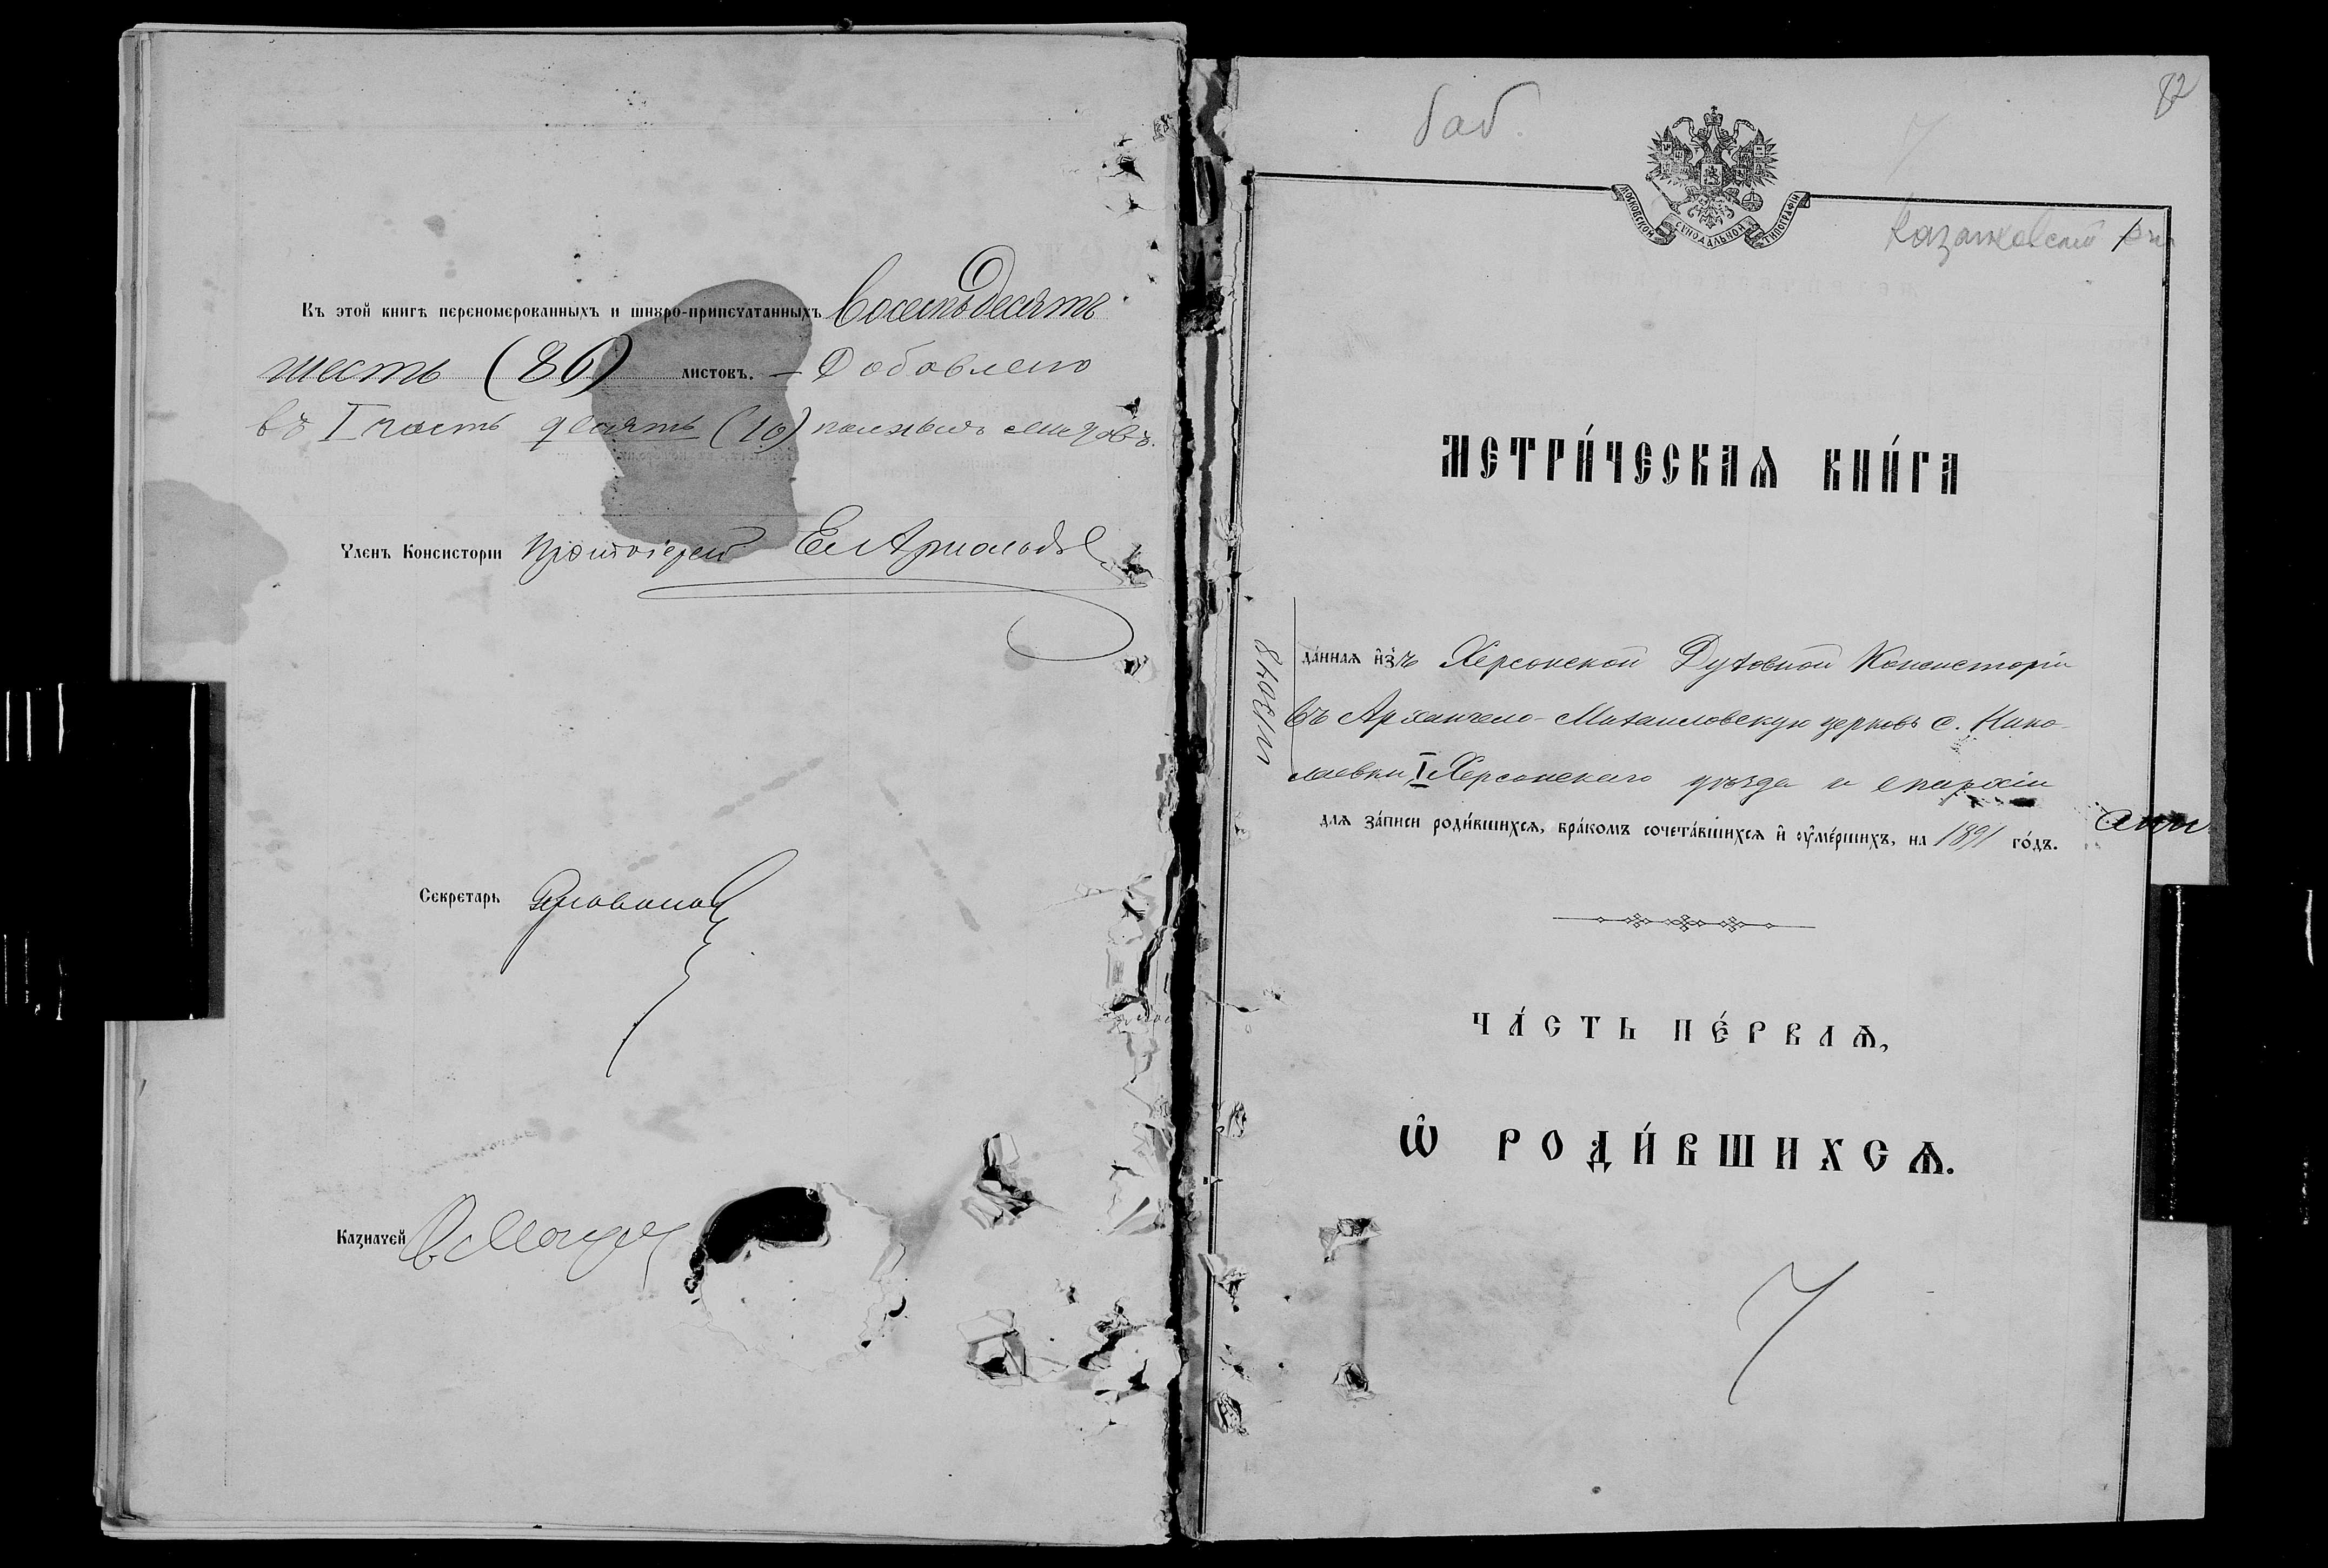 Въ этой книгѣ переномерованныхъ и шнуро-припечатанныхъ восемьдесятъ
шесть (86) листовъ. — Добавлено
въ I часть десять (10) полныхъ листовъ.
Членъ Консисторіи Протоіерей Ев Арнольдъ
Секретарь
Казначей
82
МОСКОВСКОЙ СѴНОДАЛЬНОЙ ТИПОГРАФІИ
Казанковский
МЕТРИ́ЧЕСКАѦ КНИ́ГА
да́ннаѧ и҆зъ Херсонской Духовной Консисторіи
въ Архангело-Михаиловскую церковь с. Нико-
лаевки I Херсонскаго уѣзда и епархіи
длѧ за́писи роди́вшихсѧ, бра́комъ сочета́вшихсѧ и҆ ᲂу҆ме́ршихъ, на 1891 го́дъ.
ЧА́СТЬ ПЕ́РВАѦ,
Ѡ҆ РОДИ́ВШИХСѦ.